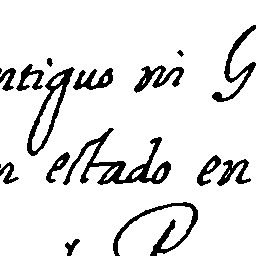 ntiguo ni G
n eſtado en
P